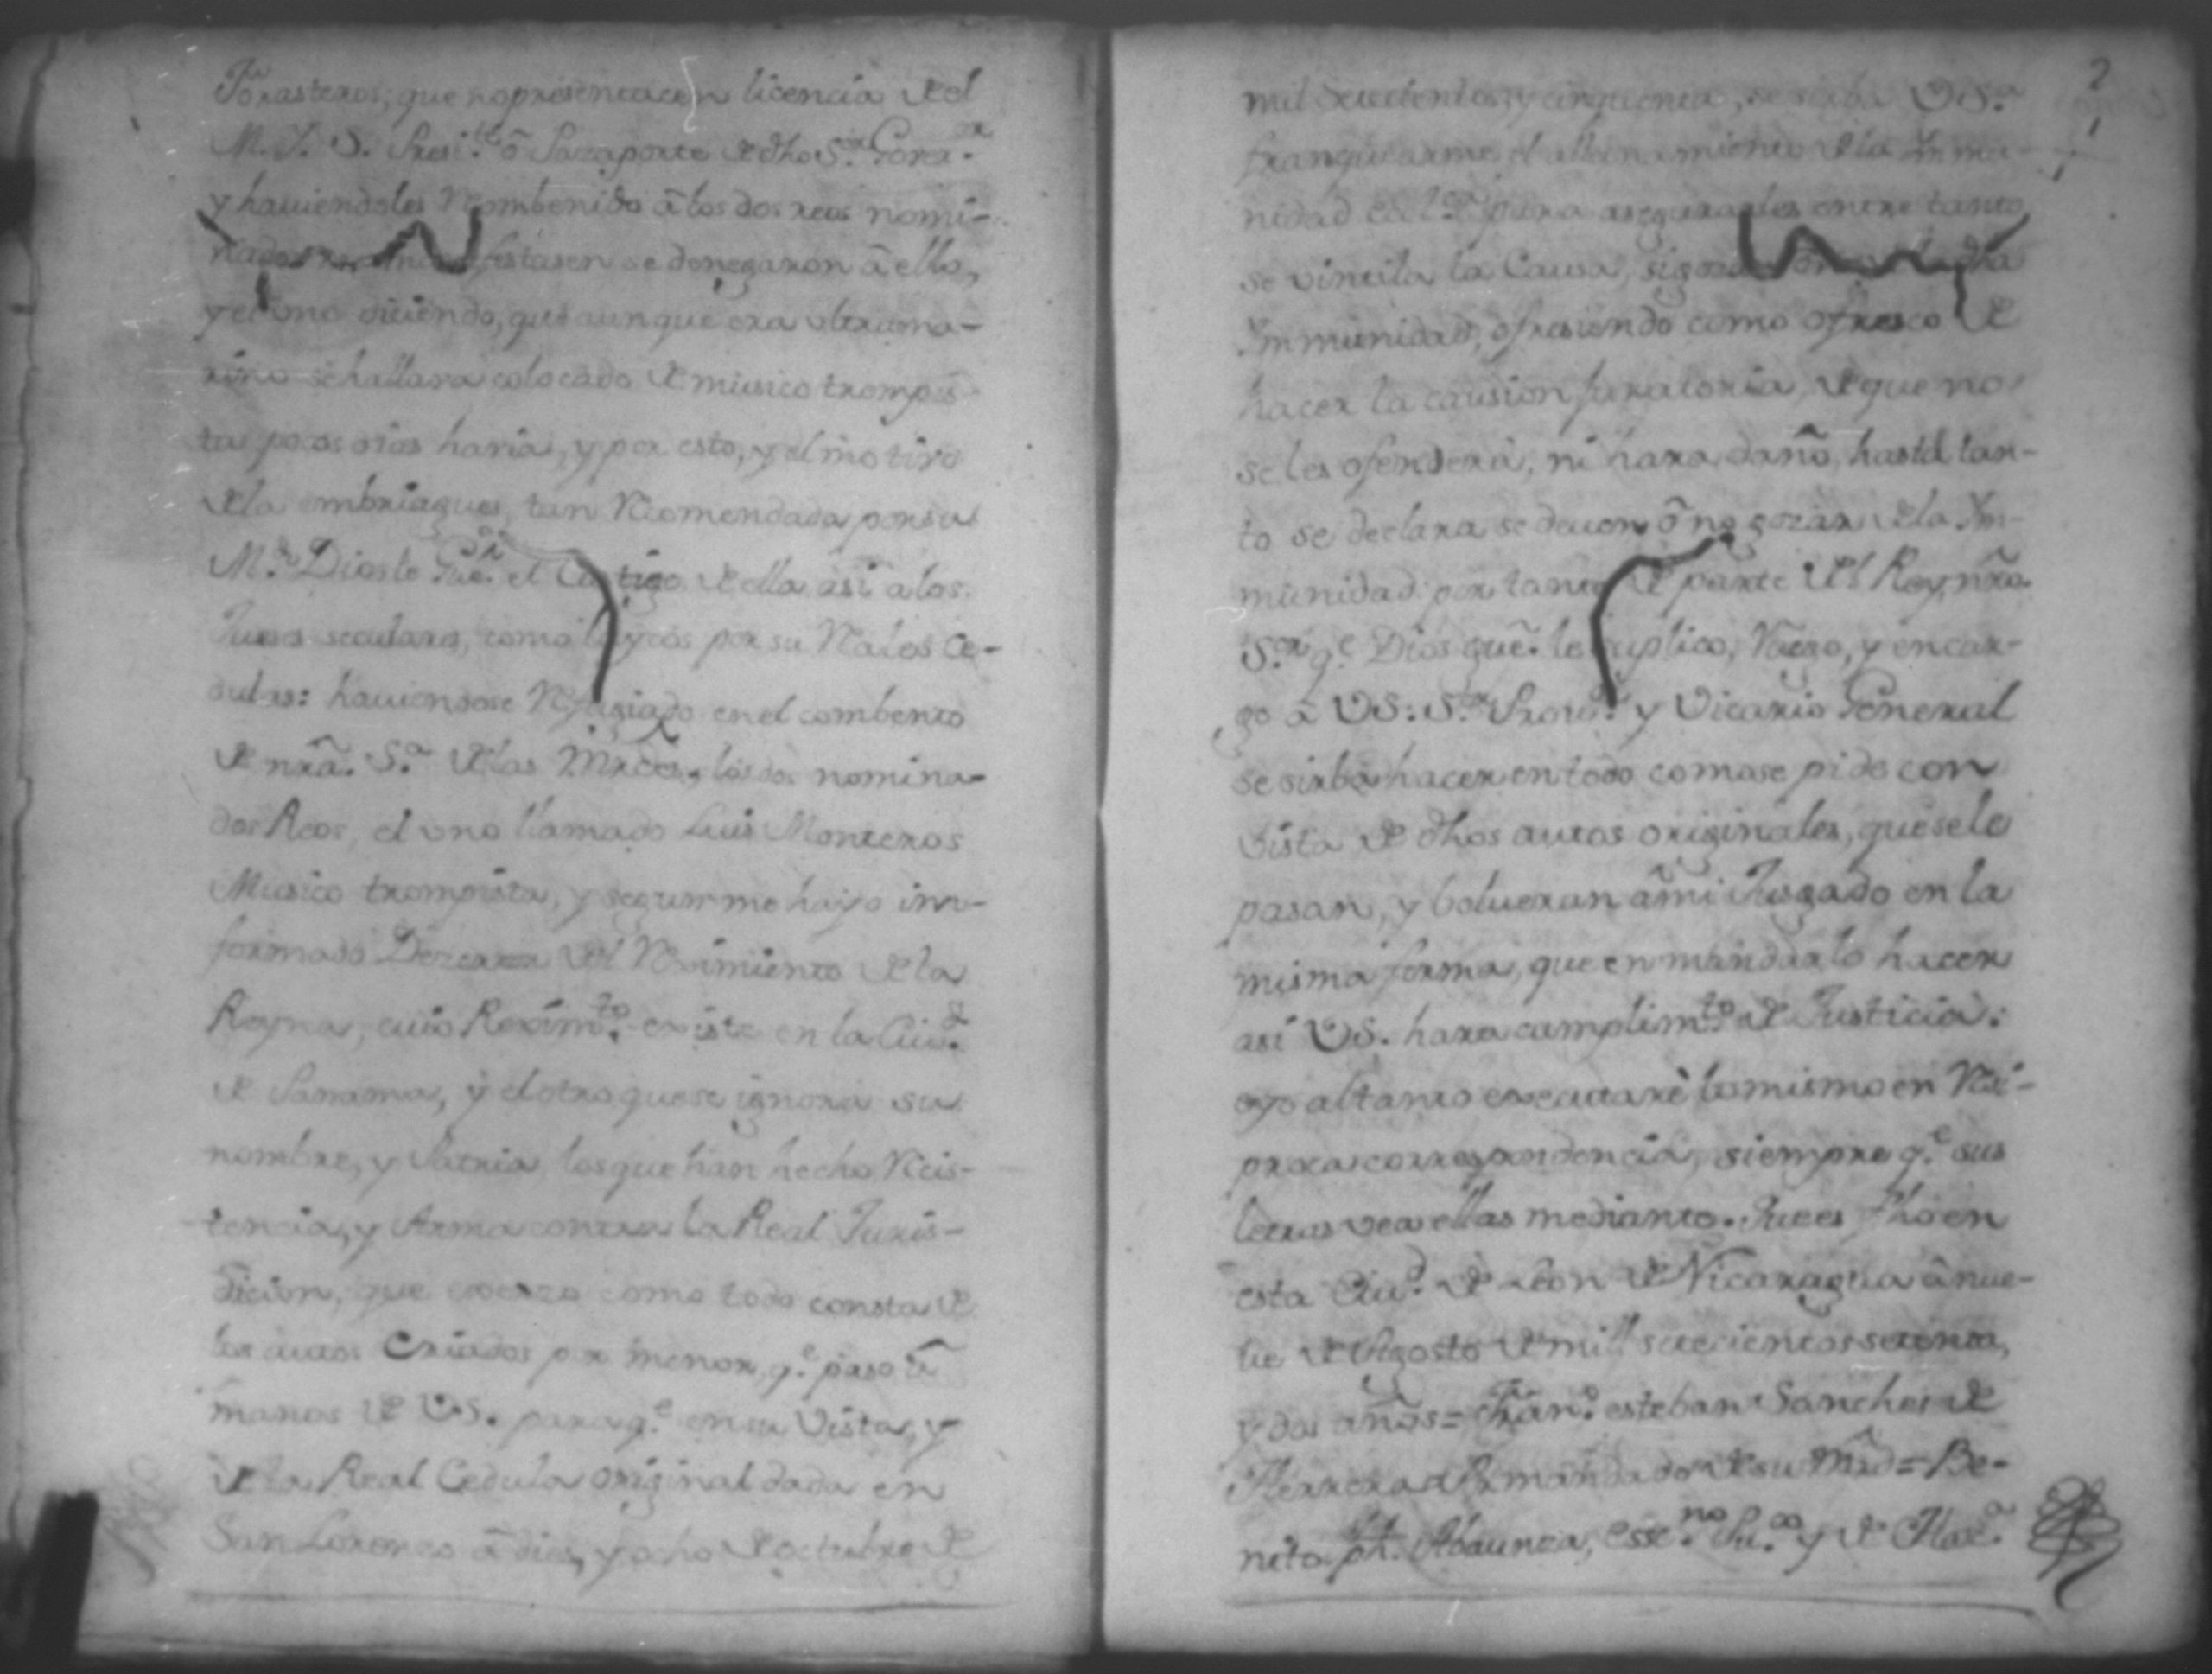 Forasteros, que no presentacen licencia de el
M. Y. S. Presi.te ô Pasaporte de dho S.or Gover.or
y haviendoles Recombenido â los dos reos nomi-
nados se denegaron â ello,
y el uno diciendo, que aunque era ultrama-
rino se hallava colocado de musico trompis-
ta pocos dias havia, y por esto, y el motivo
de la embriagues, tan Recomendada por su
M.d Dios le Gue. el Castigo de ella asi a los
Jueses seculares, como por su Rales Ce-
dulas: haviendose Refugiado en el combento
de nrâ. S.a de las Mrdes, los dos nomina-
dos Reos, el uno llamado Luis Monteros
Musico trompista, y segun me hayo inn-
formado del Reximiento de la
Reyna, cuio Reximto. existe en la Ciud.
de Panama, y el otro que se ignora su
nombre, y Patria, los que han hecho Recis-
tencia, y Arma contra la Real Juris-
dicion, que exerzo como todo consta de
los autos Criados por menor, q.e paso â
manos de V.S. para q.e en su Vista, y
de la Real Cedula original dada en
San Lorenzo â dies, y ocho de octubre de
2
mil Setecientos, y cinquenta, se sirba V.S.a
franquearme el allanamiento de la Ynmu-
nidad para asegurarles entre tanto
se vintila la Causa,
Ynmunidad, ofresiendo como ofresco de
hacer la causion juratoria, de que no
se les ofenderà, ni hara daño, hasta tan-
to se declara se deven ô no gozar de la Yn-
munidad: por tanto de parte del Rey, nro.
S.or q.e Dios gue. le suplico, Ruego, y encar-
go a VS. S.or Provi.or y Vicario General
se sirba hacer en todo como se pide con
vista de dhos autos originales, que se le
pasan, y bolveran â mi Jusgado en la
misma forma, que en mandarlo hacer
asi VS. hara cumplimto. de Justicia:
eyo al tanto executarè lo mismo en Rei-
proca correspondencia, siempre q.e sus
letras vea ellas mediante. Que es fho en
esta Ciud. de Leon de Nicaragua â nue-
be de Agosto de mill setecientos setenta,
y dos años = Fran.o esteban Sanches de
Herrera = Por mandado de su Mrd = Be-
nito Jph. Abaunza, esse.no Pu.co y de Haz.a